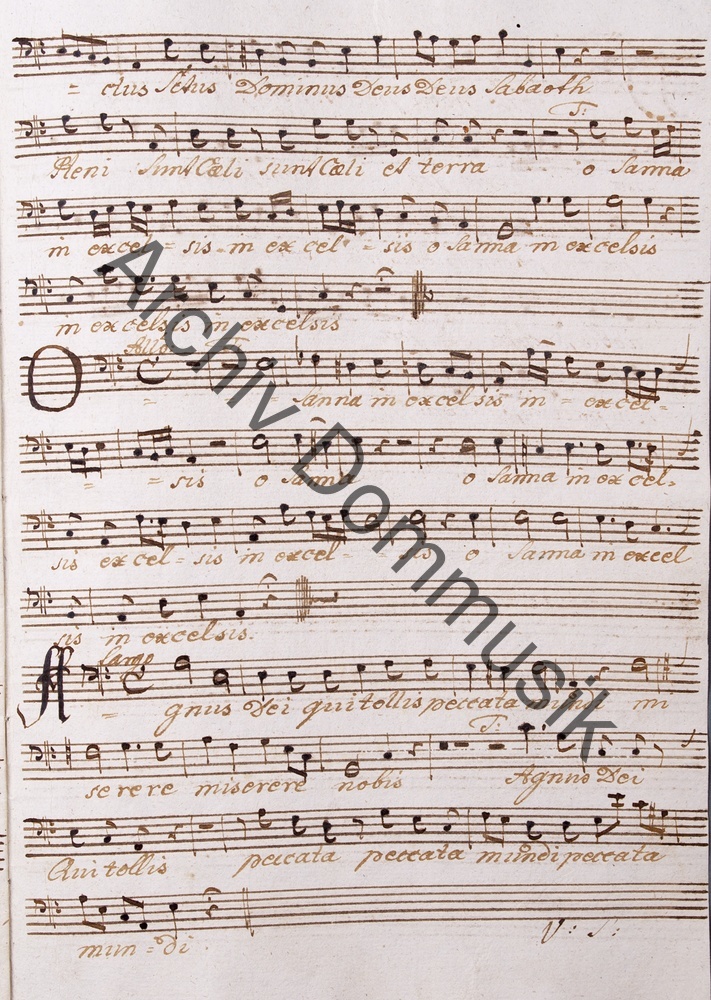 = ctus Sctus Dominus Deus Deus Sabaoth
T:
Pleni Sunt Cœli sunt Cœli et terra o Sanna
in excel = sis in ex cel = sis o Sanna in excelsis
in excelsis in excelsis
Allo
O = = Sanna in excel sis in = ex cel =
= = sis o Sanna o Sanna in ex cel =
sis ex cel = sis in excel = = sis o Sanna in excel
sis in excelsis.
Largo
A = gnus Dei qui tollis peccata mundi mi
serere miserere nobis Agnus Dei
T:
Qui tollis peccata peccata mundi peccata
mun = di
V: S:
Archiv Dommusik